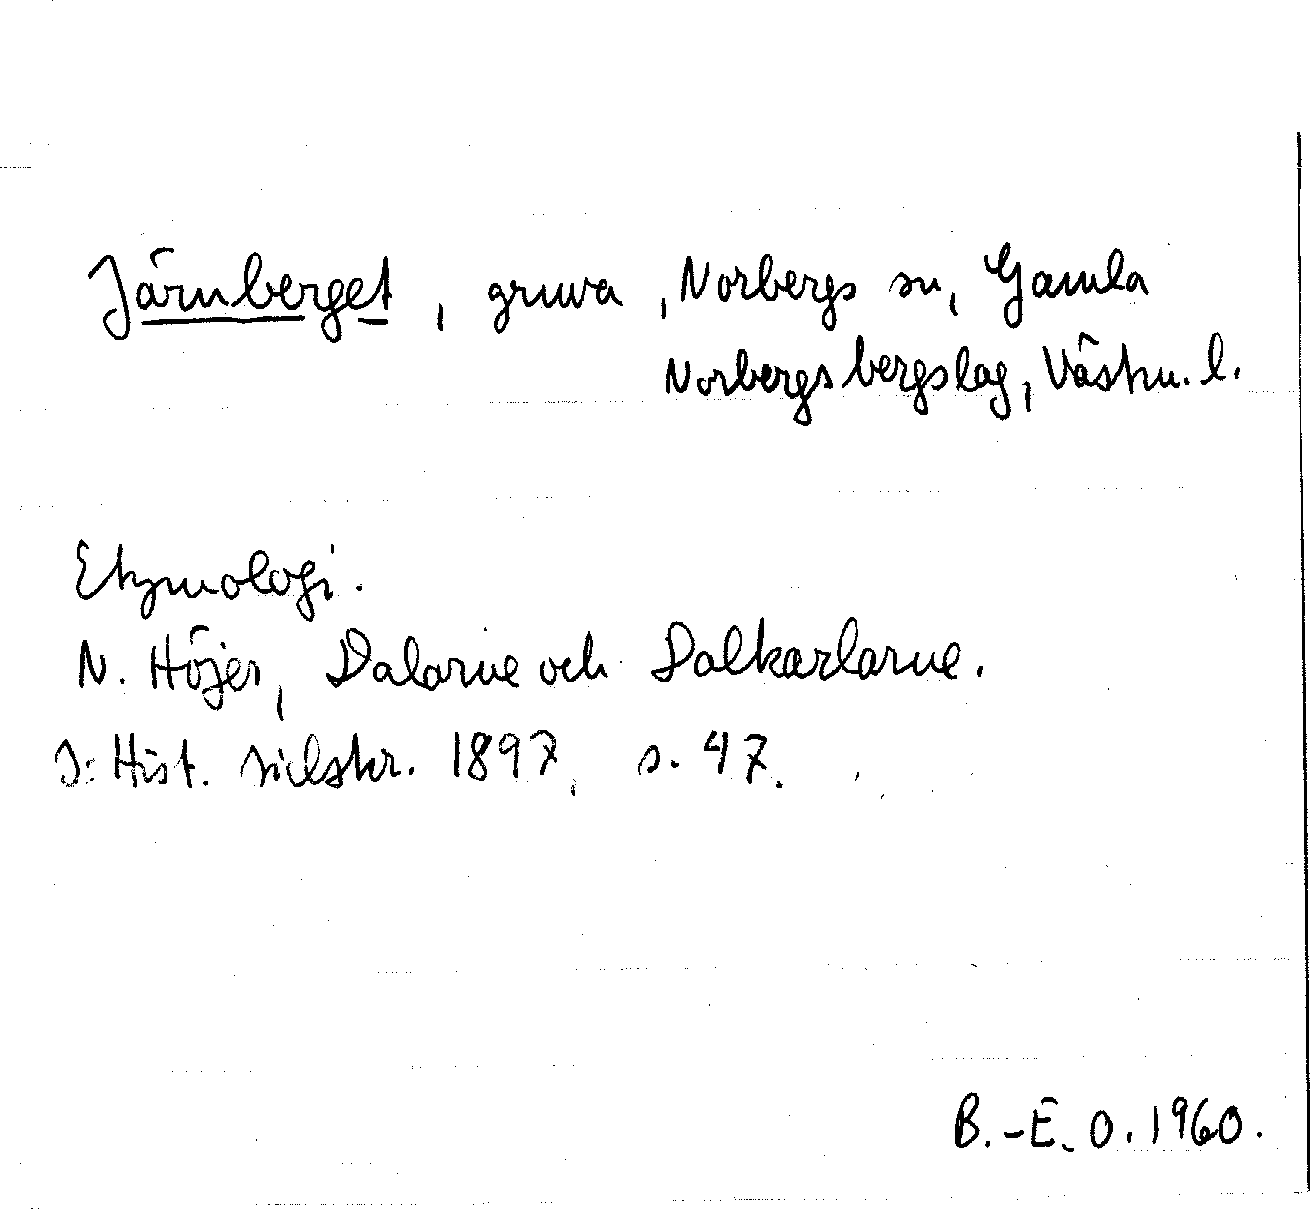 Järnberget, gruva, Norbergs sn, Gamla
Norbergs bergslag, Västm. l.
Etymologi.
N. Höjer, Dalarne och Dalkarlarne.
I: Hist. bibl. 1897, s. 47.
B.-E. O. 1960.